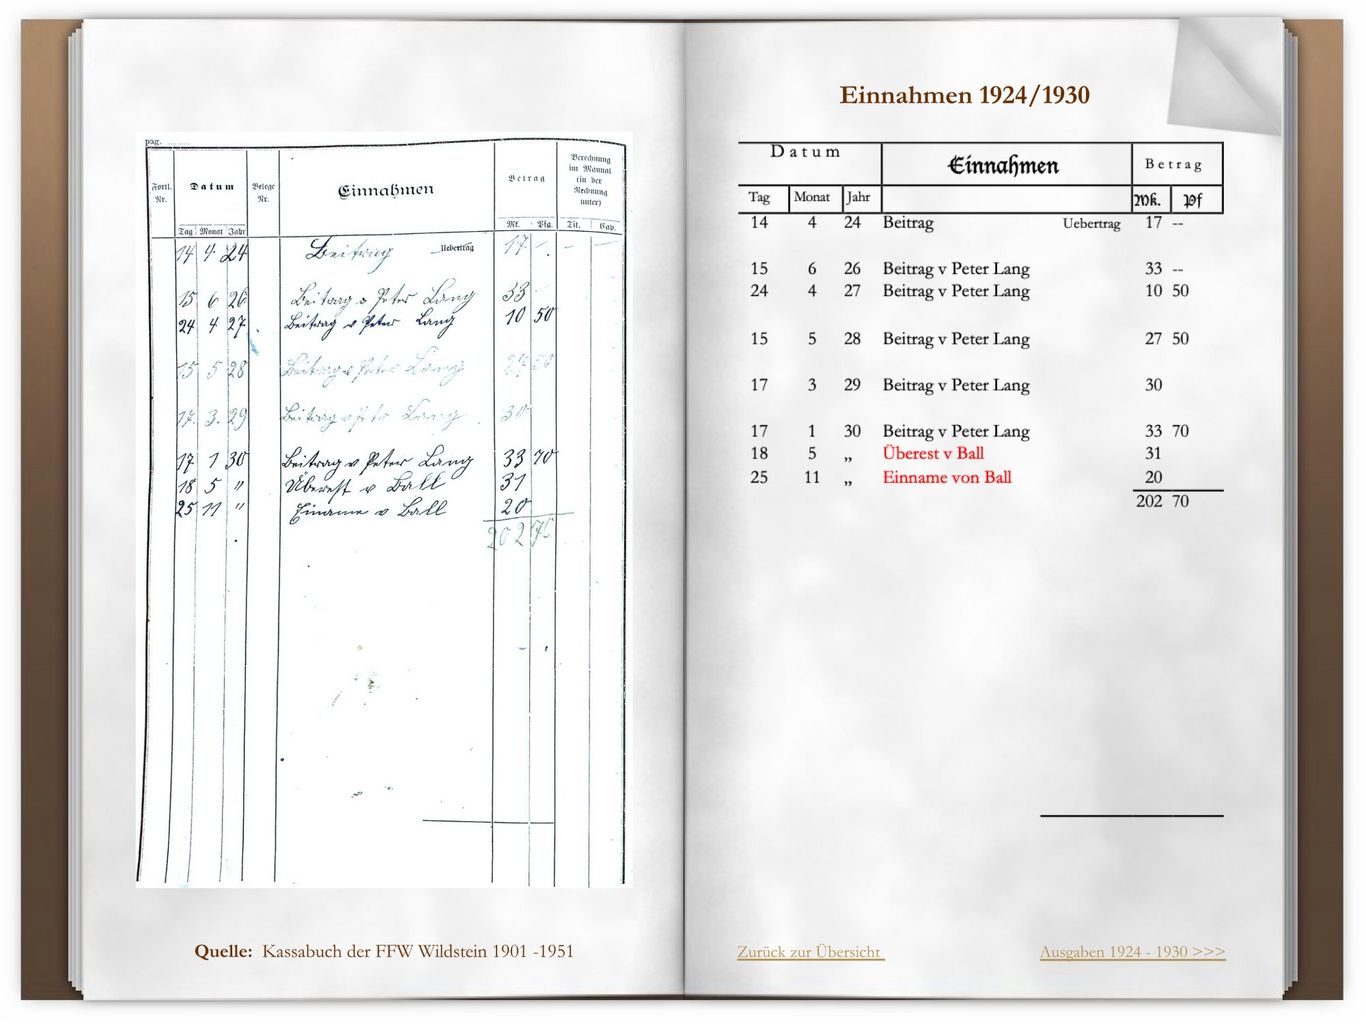 pag.
Fortl. Nr. Datum Belege Nr. Einnahmen Betrag Berechnung im Manual (in der Rechnung unter)
Tag Monat Jahr Mk. Pfg. Tit. Cap.
14 4 24 Beitrag Uebertrag 17 –
15 6 26 Beitrag v Peter Lang 33 –
24 4 27 Beitrag v Peter Lang 10 50
15 5 28 Beitrag v Peter Lang 27 50
17 3 29 Beitrag v Peter Lang 30
17 1 30 Beitrag v Peter Lang 33 70
18 5 " Überest v Ball 31
25 11 " Einame v Ball 20
202 70
Quelle: Kassabuch der FFW Wildstein 1901 -1951
Einnahmen 1924/1930
Datum Einnahmen Betrag
Tag Monat Jahr Mk. Pf
14 4 24 Beitrag Uebertrag 17 --
15 6 26 Beitrag v Peter Lang 33 --
24 4 27 Beitrag v Peter Lang 10 50
15 5 28 Beitrag v Peter Lang 27 50
17 3 29 Beitrag v Peter Lang 30
17 1 30 Beitrag v Peter Lang 33 70
18 5 „ Überest v Ball 31
25 11 „ Einname von Ball 20
202 70
Zurück zur Übersicht
Ausgaben 1924 - 1930 >>>